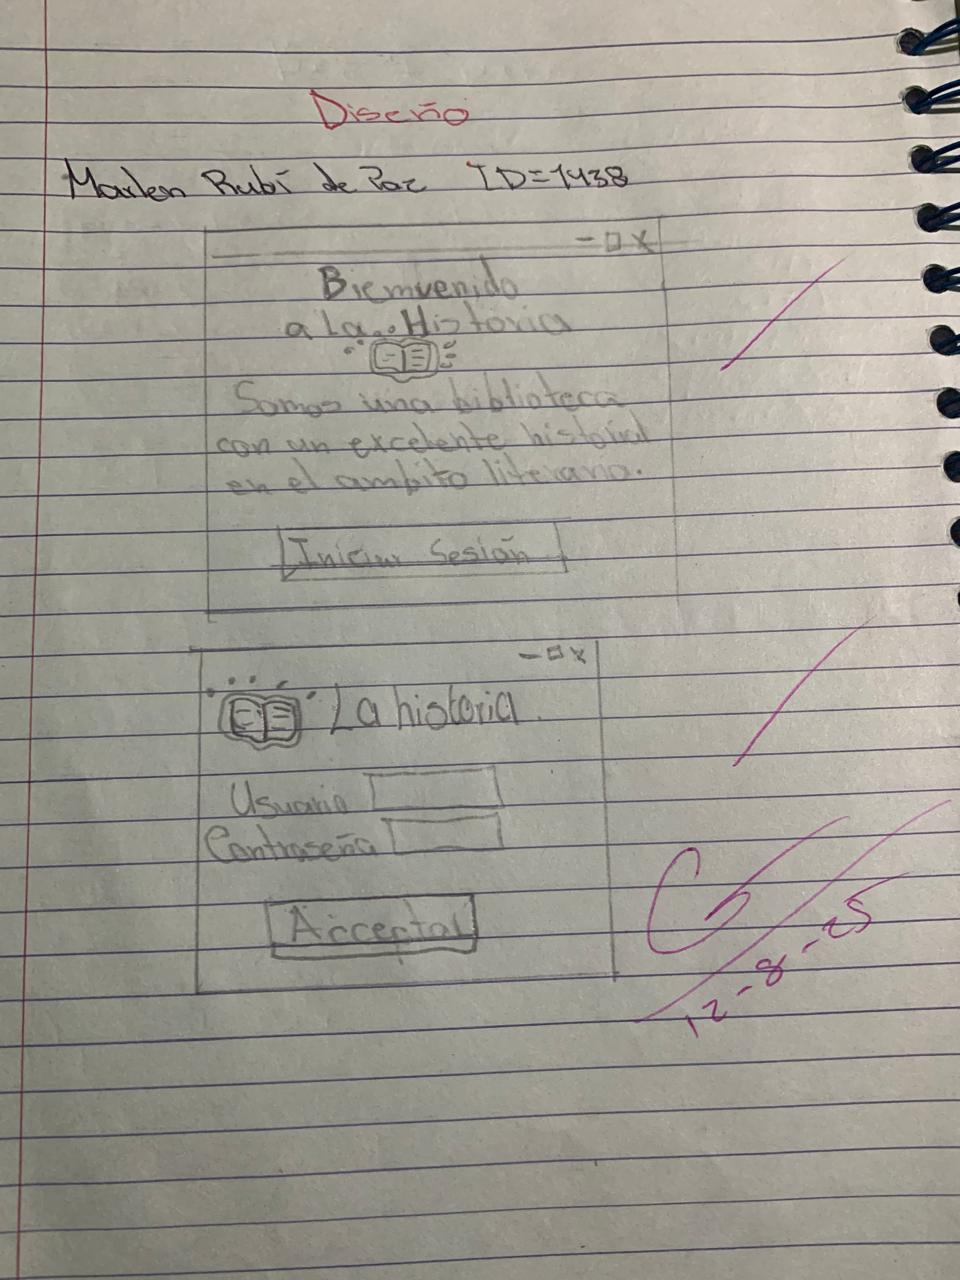 Diseño
Marlen Rubí de Paz ID=1438
Bienvenido
a La Historia
Somos una biblioteca
con un excelente historial
en el ambito literario.
Iniciar Sesión
La historia.
Usuario
Contraseña
Acceptar
12-8-25